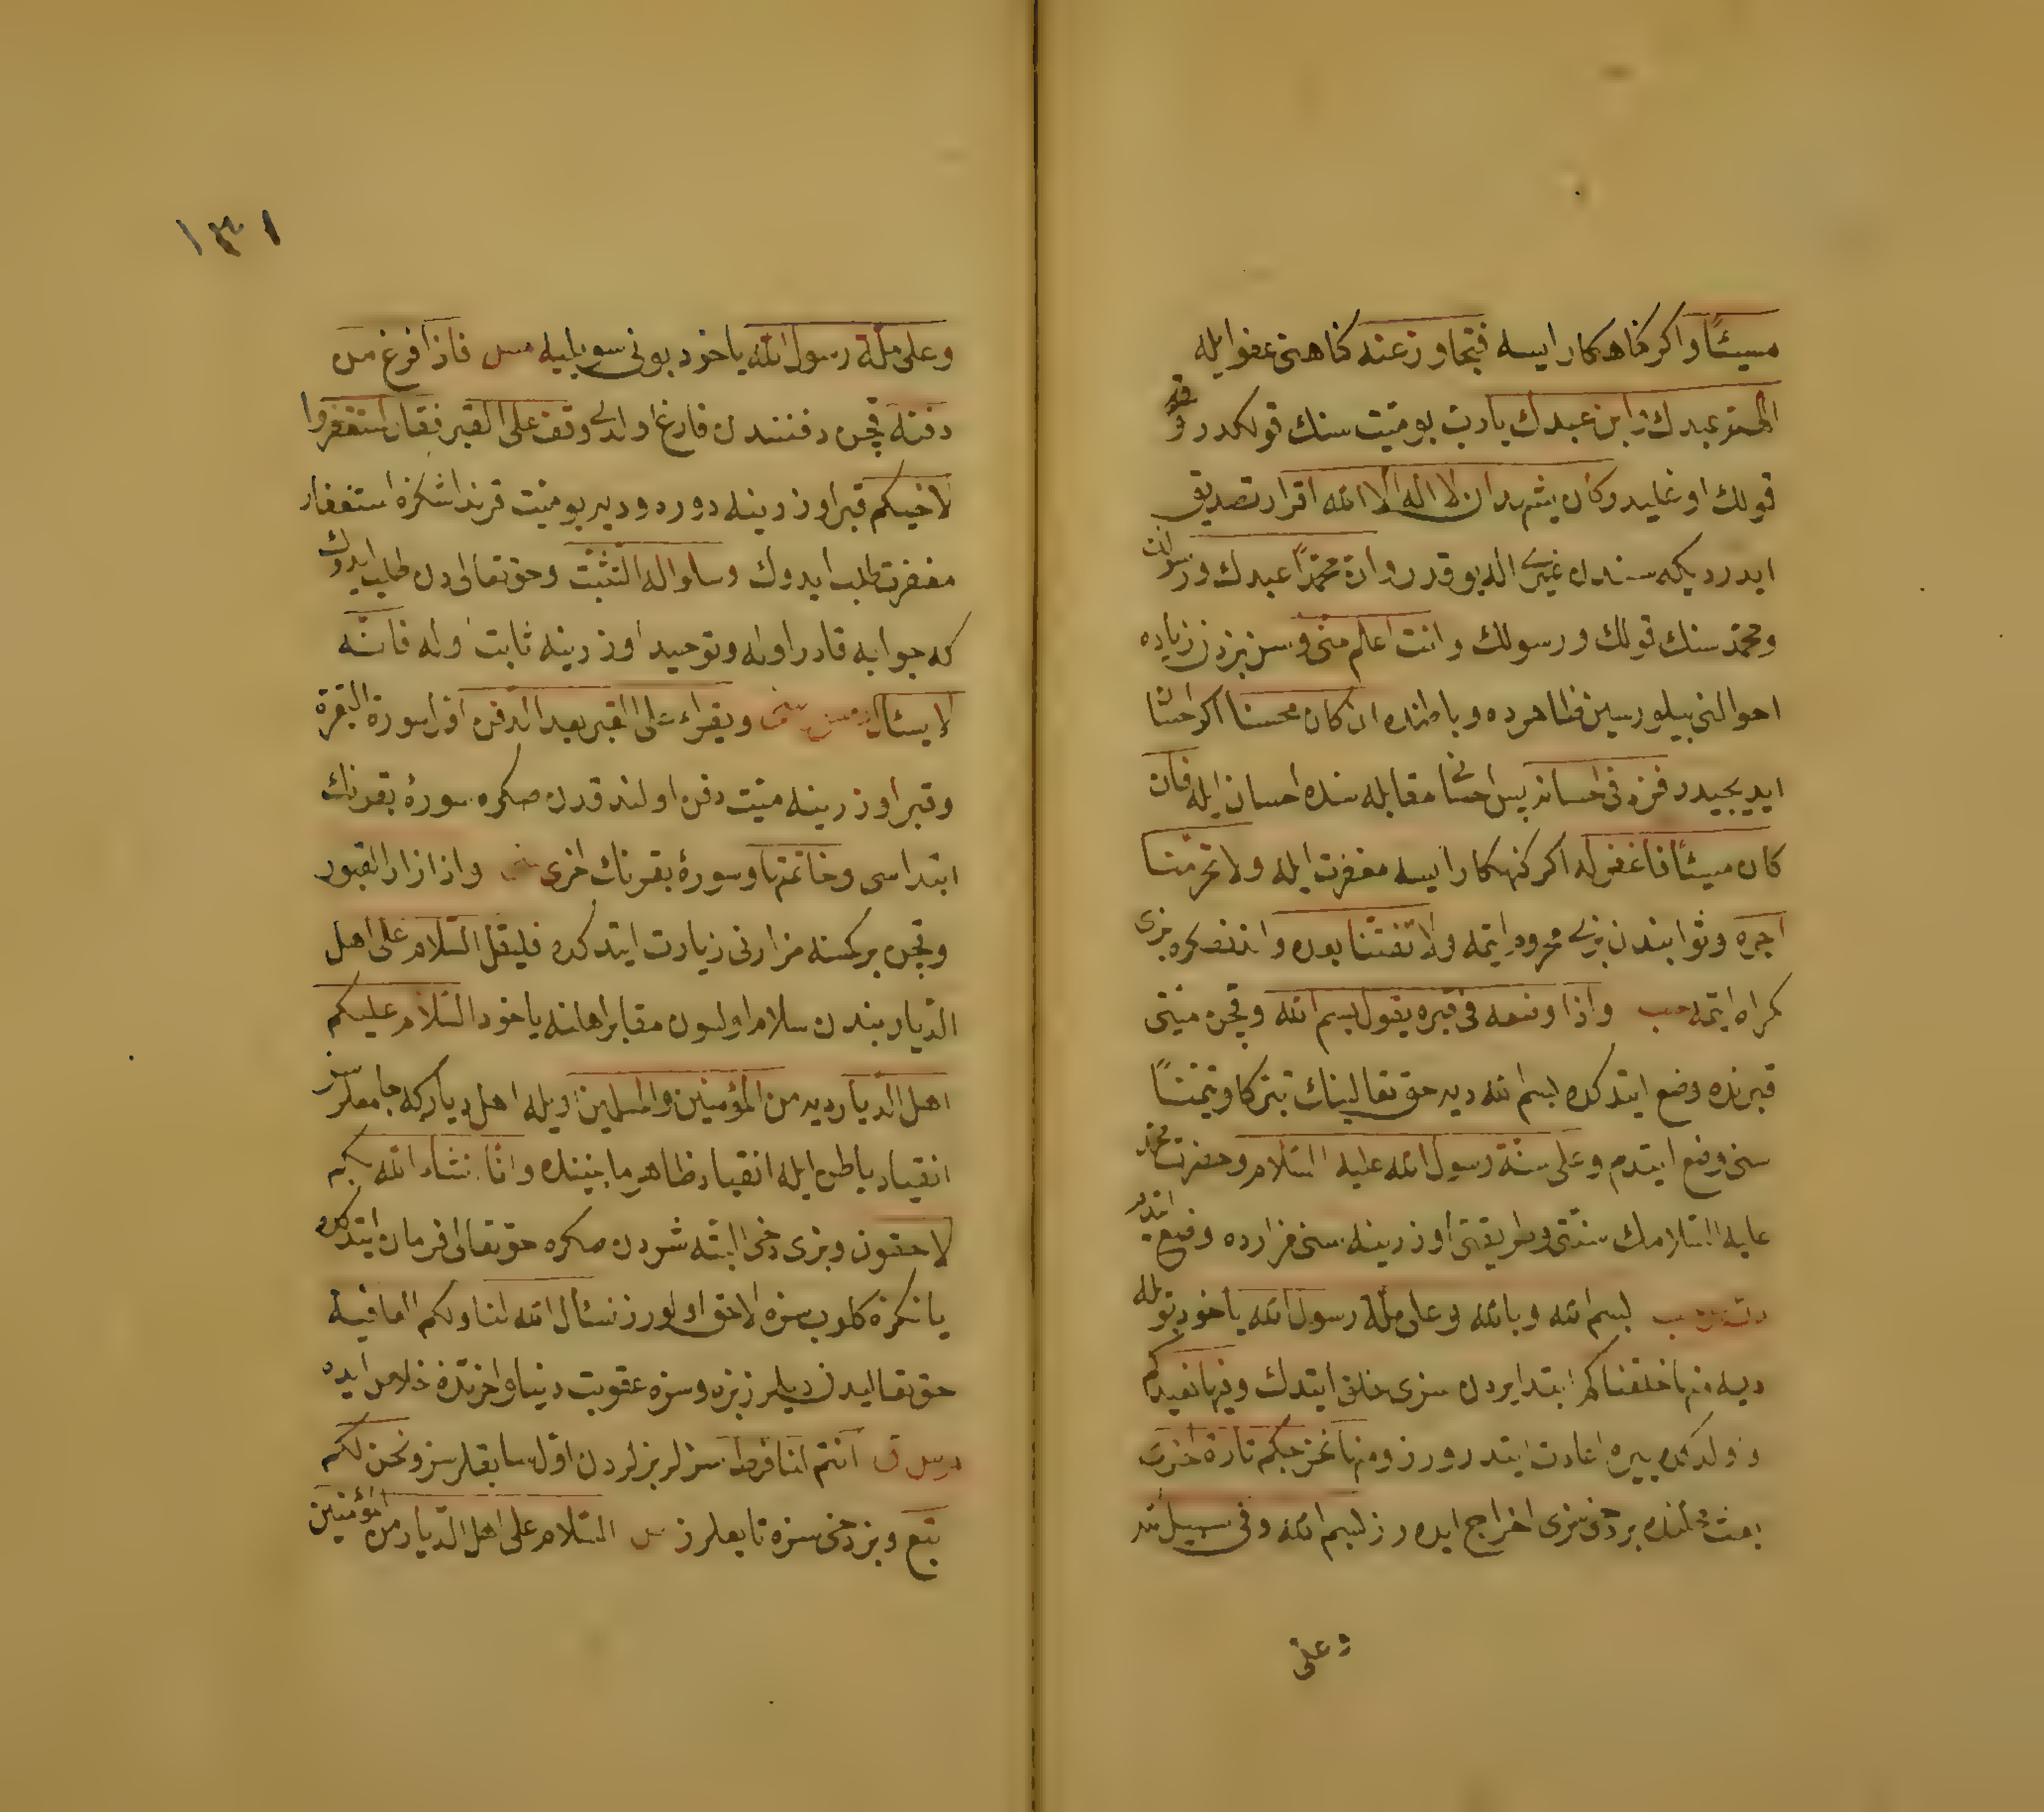 مسيئًا واكر كناهكار ايسه فتجاوز عنه كناهنى عفو ايله
اللهم عبدك وابن عبدك يا رب بو ميت سنك قولكدر و قولك
قولك اوغليدر وكان يشهد ان لا اله الا الله اقرار تصديق
ايدرديكه سندن غيرى اله يوقدر وان محمدًا عبدك ورسولك
ومحمد سنك قولك ورسولك وانت اعلم منى وسن بزدن زياده
احوالنى بيلورسين ظاهرده وباطنده ان كان محسنا اكر احسان
ايديجيدر فزد فى احسانه پس احسانى مقابله سنده احسان ايله فان
كان مسيئًا فاغفر له اكر كنهكار ايسه مغفرت ايله ولا تحرمنا
اجره وثوابندن بزى محروم ايتمه ولا تفتنا بعده واندنصكره بزى
كمراه ايتمه حب واذا وضعه فى قبره يقول بسم الله وقچن ميتى
قبرنده وضع ايتدكده بسم الله ديه حق تعالينك تبركا وتيمنًا
سنى وضع ايتدم وعلى سنة رسول الله عليه السلام وحضرت محمد
عليه السلامك سنتى وطريقتى اوزرينه سنى مزارده وضع ايتدم
بسم الله وبالله وعلى ملة رسول الله ياخود بويله
ديه منها خلقناكم ابتدا يردن سزى خلق ايتدك وفيها نعيدكم
واولدكده ييره اعادت ايتدرورز ومنها نخرجكم تارة اخرى
بعث وقتنده بر دخى سزى اخراج ايده رز بسم الله وفى سبيل الله
وعلى
١٣١
وعلى ملة رسول الله ياخود بونى سويليه مس فاذا فرغ من
دفنه قچن دفنندن فارغ اولدى وقف على القبر فقال استغفروا
لاخيكم قبر اوزرينه دوره وديه بو ميت قرنداشكزه استغفار
مغفرت طلب ايدوك وسلوا له التثبت وحق تعالى دن طلب ايدوك
كه جوابه قادر اوله وتوحيد اوزرينه ثابت اوله فانه
الآن يسئال ويقراء على القبر بعد الدفن اول سورة البقرة
وقبر اوزرينه ميت دفن اولندقدن صكره سورۀ بقرنك
ابتداسى وخاتمتها وسورۀ بقرنك اخرى واذا زار القبور
وقچن بر كمسنه مزارنى زيارت ايتدكده فليقل السلام على اهل
الديار بندن سلام اولسون مقابر اهلنه ياخود السلام عليكم
اهل الديار ديه من المؤمنين والمسلمين اويله اهل ديار كه جامعلرسز
انقياد باطن ايله انقياد ظاهر مابيننده وانا ان شاء الله بكم
لاحقون وبزى دخى البته شردن صكره حق تعالى فرمان ايتدكده
يانكزه كلوب سزه لاحق اولورز نسئال الله لنا ولكم العافية
حق تعاليدن ديلرز بزه وسزه عقوبت دنيا واخرتده خلاص ايده
م س ق انتم لنا فرط سزلر بزلردن اول سابقلرسز ونحن لكم
تبع وبز دخى سزه تابعلرز س السلام على اهل الديار من المؤمنين